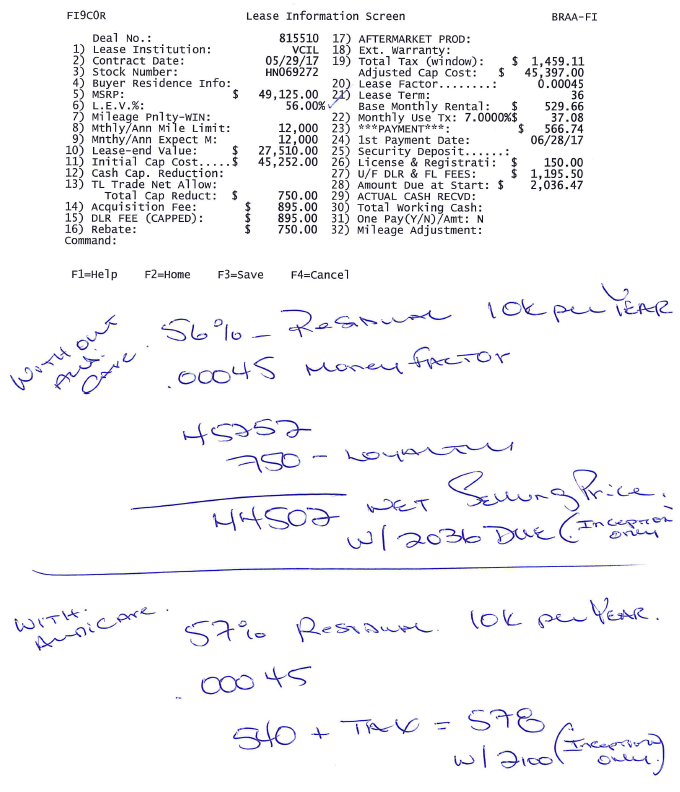 FI9C0R Lease Information Screen BRAA-FI
Deal No.: 815510 17) AFTERMARKET PROD:
1) Lease Institution: VCIL 18) Ext. Warranty:
2) Contract Date: 05/29/17 19) Total Tax (window): $ 1,459.11
3) Stock Number: HN069272 Adjusted Cap Cost: $ 45,397.00
4) Buyer Residence Info: 20) Lease Factor........: 0.00045
5) MSRP: $ 49,125.00 21) Lease Term: 36
6) L.E.V.%: 56.00% Base Monthly Rental: $ 529.66
7) Mileage Pnlty-WIN: 22) Monthly Use Tx: 7.0000%$ 37.08
8) Mthly/Ann Mile Limit: 12,000 23) ***PAYMENT***: $ 566.74
9) Mnthy/Ann Expect M: 12,000 24) 1st Payment Date: 06/28/17
10) Lease-end Value: $ 27,510.00 25) Security Deposit......:
11) Initial Cap Cost.....$ 45,252.00 26) License & Registrati: $ 150.00
12) Cash Cap. Reduction: 27) U/F DLR & FL FEES: $ 1,195.50
13) TL Trade Net Allow: 28) Amount Due at Start: $ 2,036.47
Total Cap Reduct: $ 750.00 29) ACTUAL CASH RECVD:
14) Acquisition Fee: $ 895.00 30) Total Working Cash:
15) DLR FEE (CAPPED): $ 895.00 31) One Pay(Y/N)/Amt: N
16) Rebate: $ 750.00 32) Mileage Adjustment:
Command:
F1=Help F2=Home F3=Save F4=Cancel
WITHOUT
AUDI
CARE.
56% - Residual 10k per YEAR
.00045 Money factor
45252
750 - LOYALTY
44502 NET Selling Price.
W/ 2036 DUE (Inception
only
WITH.
AUDICARE.
57% Residual. 10k per YEAR.
.00045
540 + TAX = 578
W/ 2100 (Inception
only.)